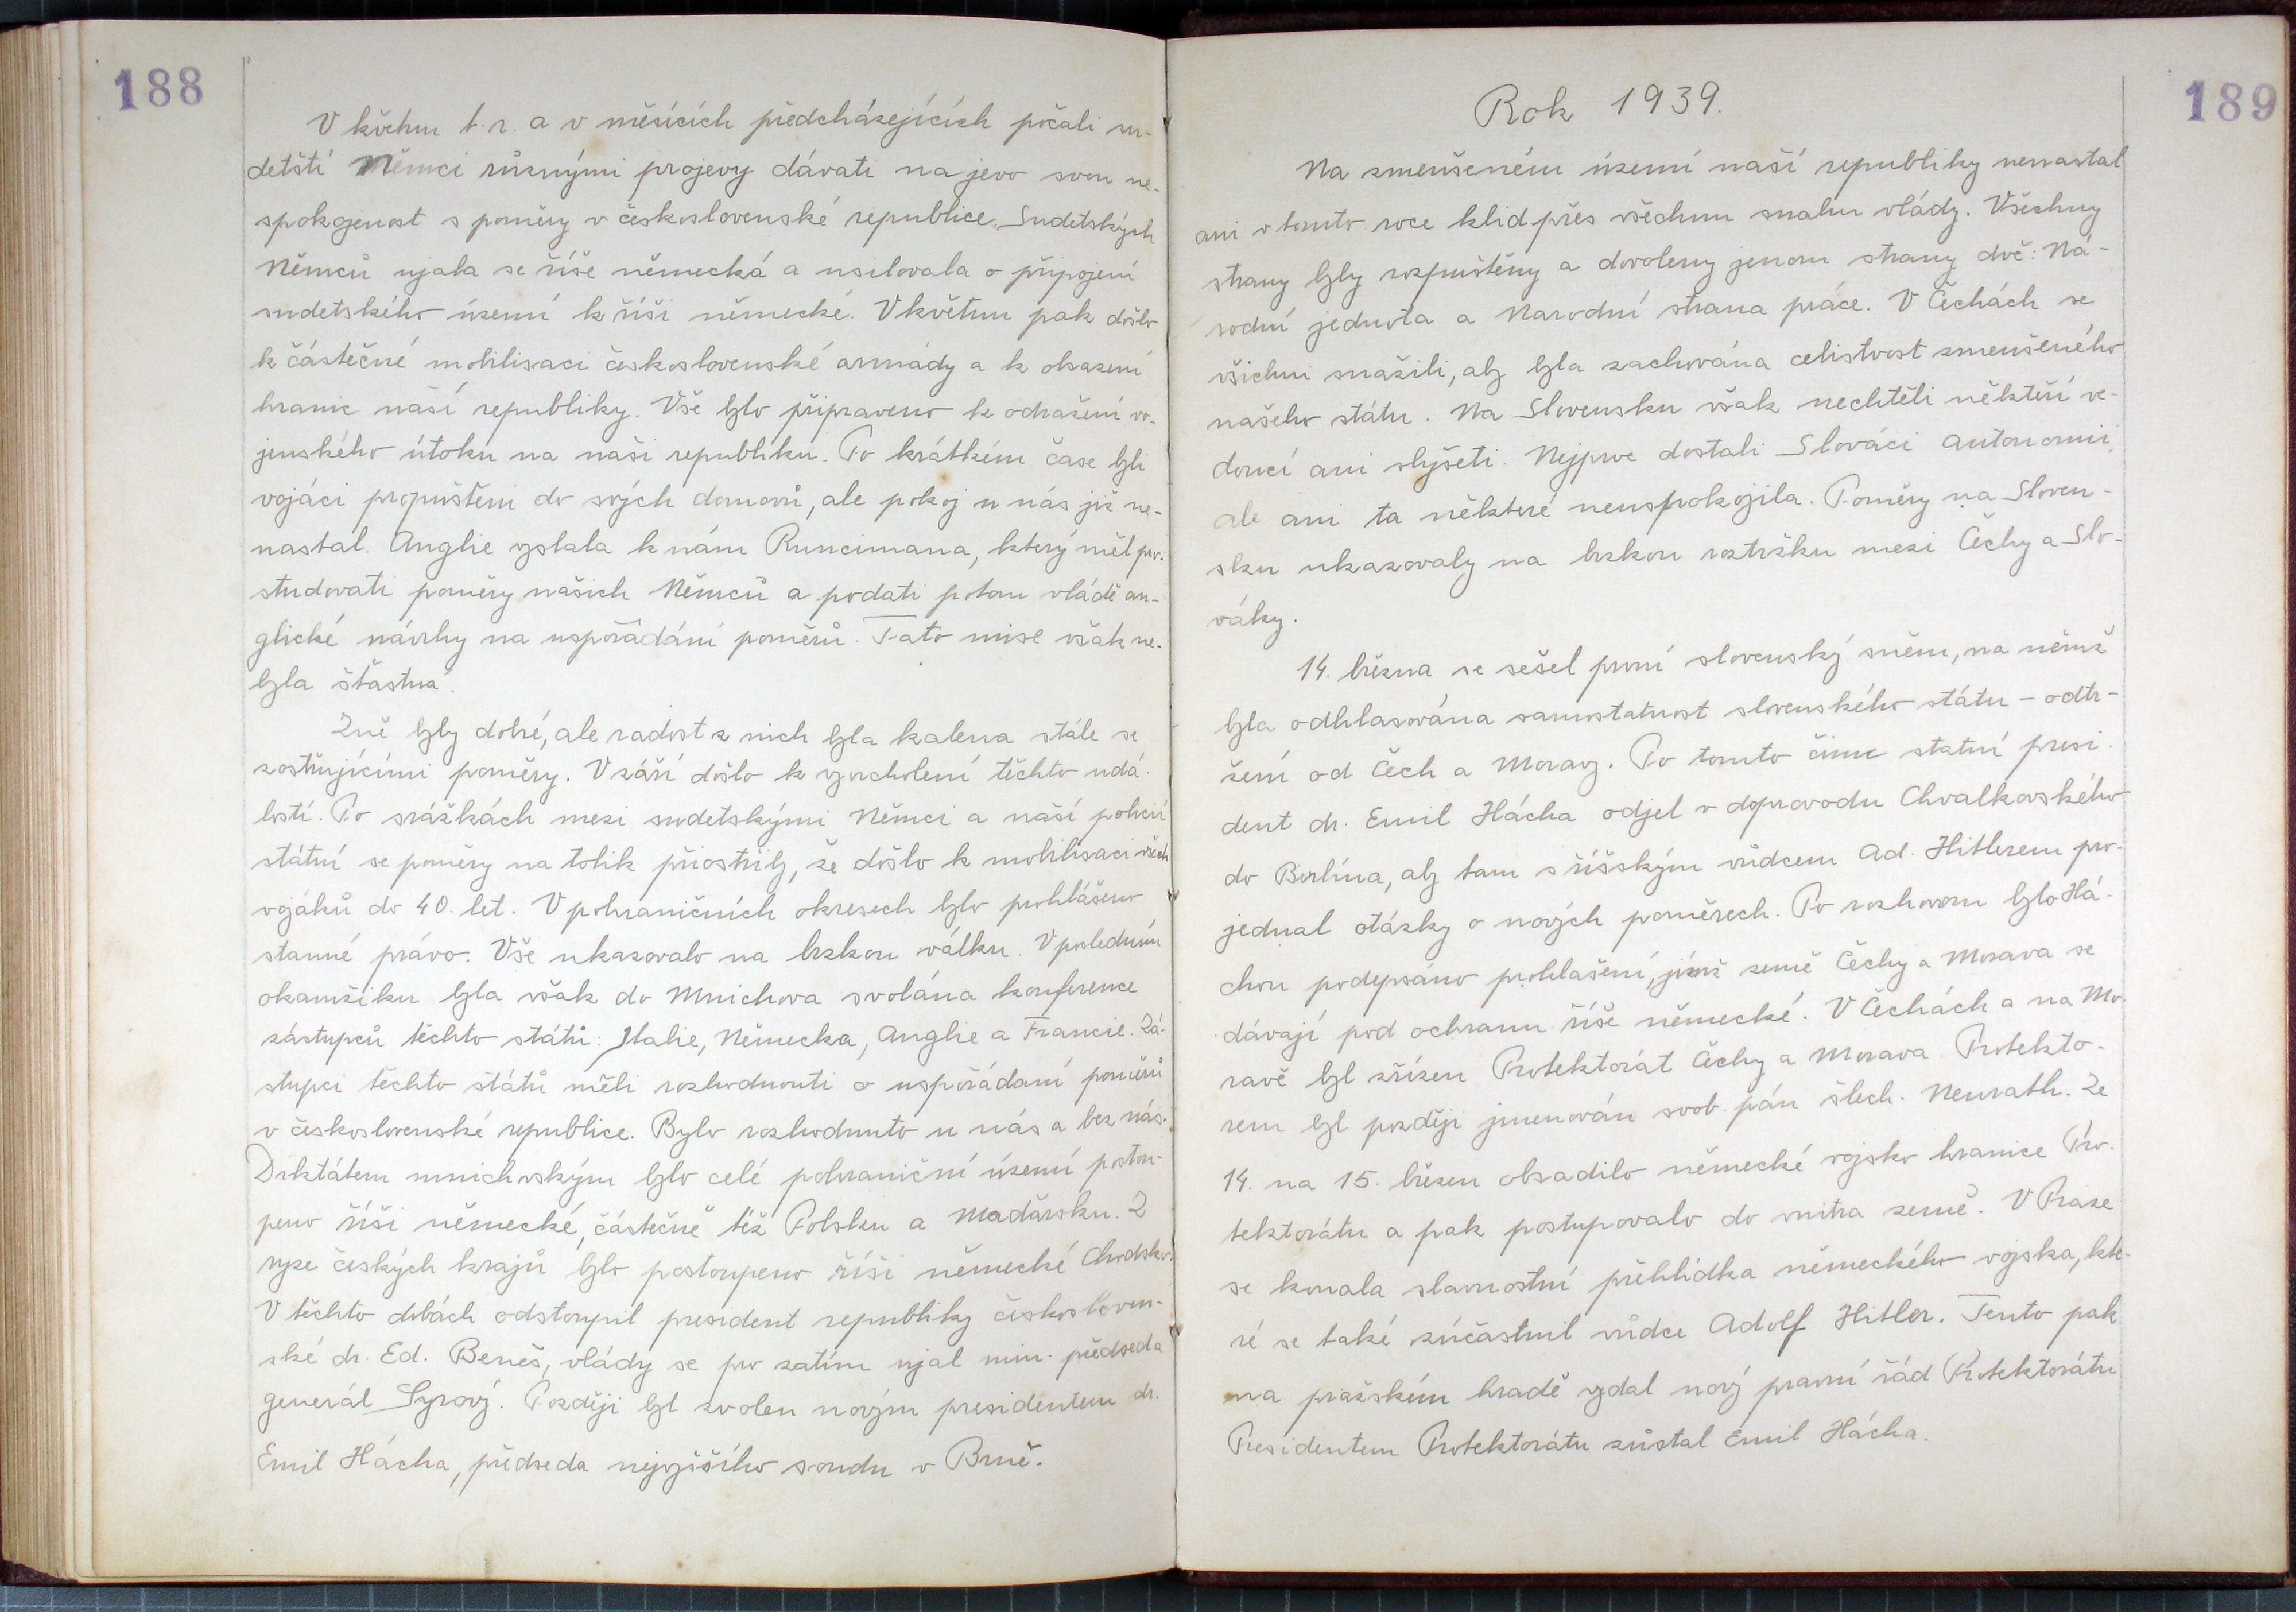 188
V květnu t. r. a v měsících předcházejících počali su-
detští Němci různými projevy dávati na jevo svou ne-
spokojenost s poměry v československé republice. Sudetských
Němců ujala se říše německá a usilovala o připojení
sudetského území k říši německé. V květnu pak došlo
k částečné mobilisaci československé armády a k obsazení
hranic naší republiky. Vše bylo připraveno k odražení vo-
jenského útoku na naši republiku. Po krátkém čase byli
vojáci propuštěni do svých domovů, ale pokoj u nás již ne-
nastal. Anglie vyslala k nám Runcimana, který měl pro-
studovati poměry našich Němců a podati potom vládě an-
glické návrhy na uspořádání poměrů. Tato mise však ne-
byla šťastna.
Žně byly dobré, ale radost z nich byla kalena stále se
zostřujícími poměry. V září došlo k vyvrcholení těchto udá-
lostí. Po srážkách mezi sudetskými Němci a naší policií
státní se poměry na tolik přiostřily, že došlo k mobilisaci všech
vojáků do 40. let. V pohraničních okresech bylo prohlášeno
stanné právo. Vše ukazovalo na brzkou válku. V posledním
okamžiku byla však do Mnichova svolána konference
zástupců těchto států: Italie, Německa, Anglie a Francie. Zá-
stupci těchto států měli rozhodnouti o uspořádaní poměrů
v československé republice. Bylo rozhodnuto u nás a bez nás.
Diktátem mnichovským bylo celé pohraniční území postou-
peno říši německé, částečně též Polsku a Maďarsku. Z
ryze českých krajů bylo postoupeno říši německé Chodsko.
V těchto dobách odstoupil president republiky českosloven-
ské dr. Ed. Beneš, vlády se pro zatím ujal min. předseda
generál Syrový. Později byl zvolen novým presidentem dr.
Emil Hácha, předseda nejvyššího soudu v Brně.
189
Rok 1939.
Na zmenšeném území naší republiky nenastal
ani v tomto roce klid přes všechnu snahu vlády. Všechny
strany byly rozpuštěny a dovoleny jenom strany dvě: Ná-
rodní jednota a Narodní strana práce. V Čechách se
všichni snažili, aby byla zachována celistvost zmenšeného
našeho státu. Na Slovensku však nechtěli někteří ve-
doucí ani slyšeti. Nejprve dostali Slováci autonomii,
ale ani ta některé neuspokojila. Poměry na Sloven-
sku ukazovaly na brzkou roztržku mezi Čechy a Slo-
váky.
14. března se sešel první slovenský sněm, na němž
byla odhlasována samostatnost slovenského státu - odtr-
žení od Čech a Moravy. Po tomto činu statní presi-
dent dr. Emil Hácha odjel v doprovodu Chvalkovského
do Berlína, aby tam s říšským vůdcem Ad. Hitlerem pro-
jednal otázky o nových poměrech. Po rozhovoru bylo Há-
chou podepsáno prohlašení, jímž země Čechy a Morava se
dávají pod ochranu říše německé. V Čechách a na Mo-
ravě byl zřízen Protektorát Čechy a Morava. Protekto-
rem byl později jmenován svob. pán šlech. Neurath. Ze
14. na 15. březen obsadilo německé vojsko hranice Pro-
tektorátu a pak postupovalo do vnitra země. V Praze
se konala slavnostní přehlídka německého vojska, kte-
ré se také zúčastnil vůdce Adolf Hitler. Tento pak
na pražském hradě vydal nový pravní řád Protektorátu
Presidentem Protektorátu zůstal Emil Hácha.